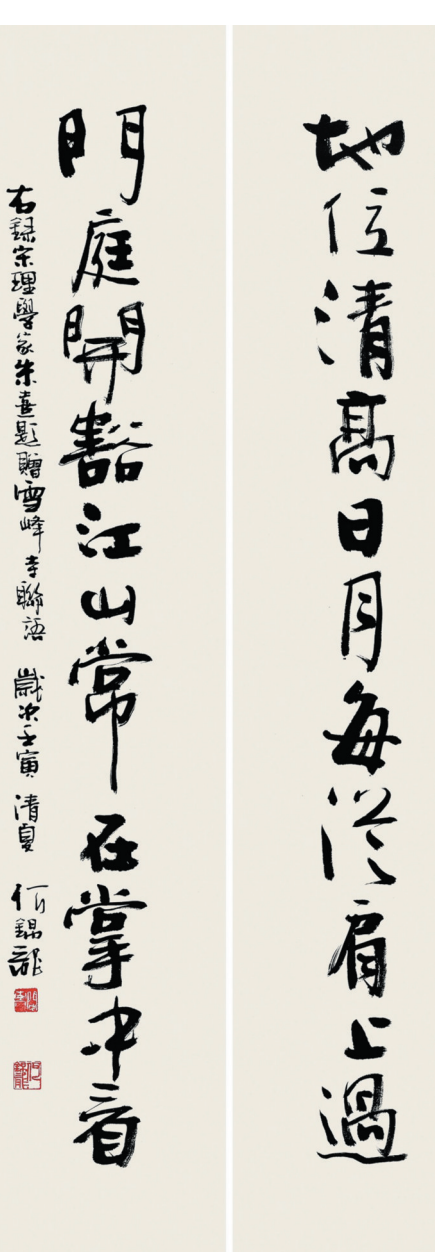 地位清高日月每從肩上過
門庭開豁江山常在掌中看
右録宋理學家朱熹題贈雪峰寺聯語 歲次壬寅 清夏 何錦龍